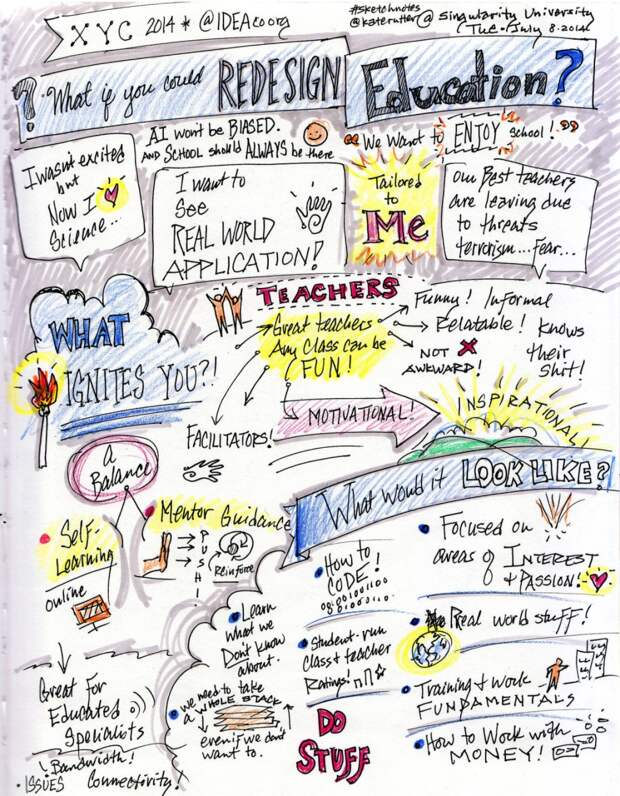 XYC 2014 * @IDEAco org
#sketchnotes
@katerutter @ Singularity University
(Tue • July 8 • 2014)
? What if you could REDESIGN Education?
I wasn't excited
but
Now I ♥
Science...
AI won't be BIASED.
AND SCHOOL should ALWAYS be there
"We Want to ENJOY school!"
I want to
see
REAL WORLD
APPLICATION!
Tailored
to
Me
Our Best teachers
are leaving due
to threats
terrorism...Fear...
TEACHERS
WHAT
IGNITES YOU?!
Great teachers
Any Class can be
FUN!
Funny! Informal
Relatable! Knows
their
shit!
NOT X
AWKWARD!
MOTIVATIONAL!
INSPIRATIONAL!
FACILITATORS!
a
Balance
Self-
Learning
online
Mentor Guidance
PUSH!
Reinforce
Great For
Educated
Specialists
• ISSUES
Bandwidth!
Connectivity!
What would it LOOK LIKE?
• Learn
what we
Don't know
about.
• we need to take
a WHOLE STACK
even if we don't
want to.
• How to
CODE!
• Student-run
class & teacher
Ratings!
DO
STUFF
• Focused on
areas of INTEREST
+ PASSION!
• Real world stuff!
• Training + work
FUNDAMENTALS
• How to Work with
MONEY!